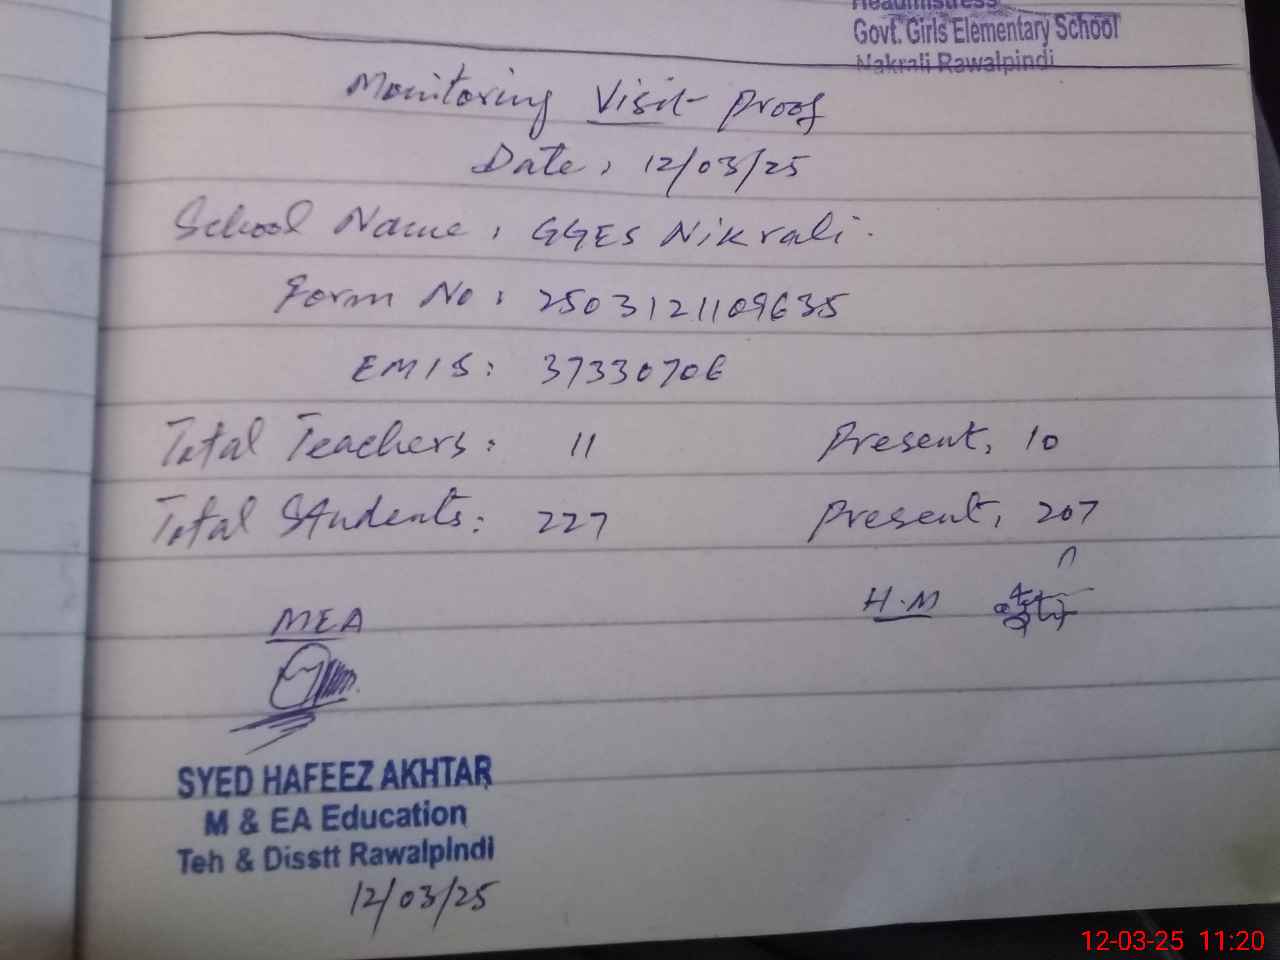 Headmistress
Govt. Girls Elementary School
Nakrali Rawalpindi
Monitoring Visit Proof
Date: 12/03/25
School Name: GGES Nikrali.
Form No: 2503121109635
EMIS: 37330706
Total Teachers: 11 Present, 10
Total Students: 227 Present, 207
MEA H.M
SYED HAFEEZ AKHTAR
M & EA Education
Teh & Disstt Rawalpindi
12/03/25
12-03-25 11:20